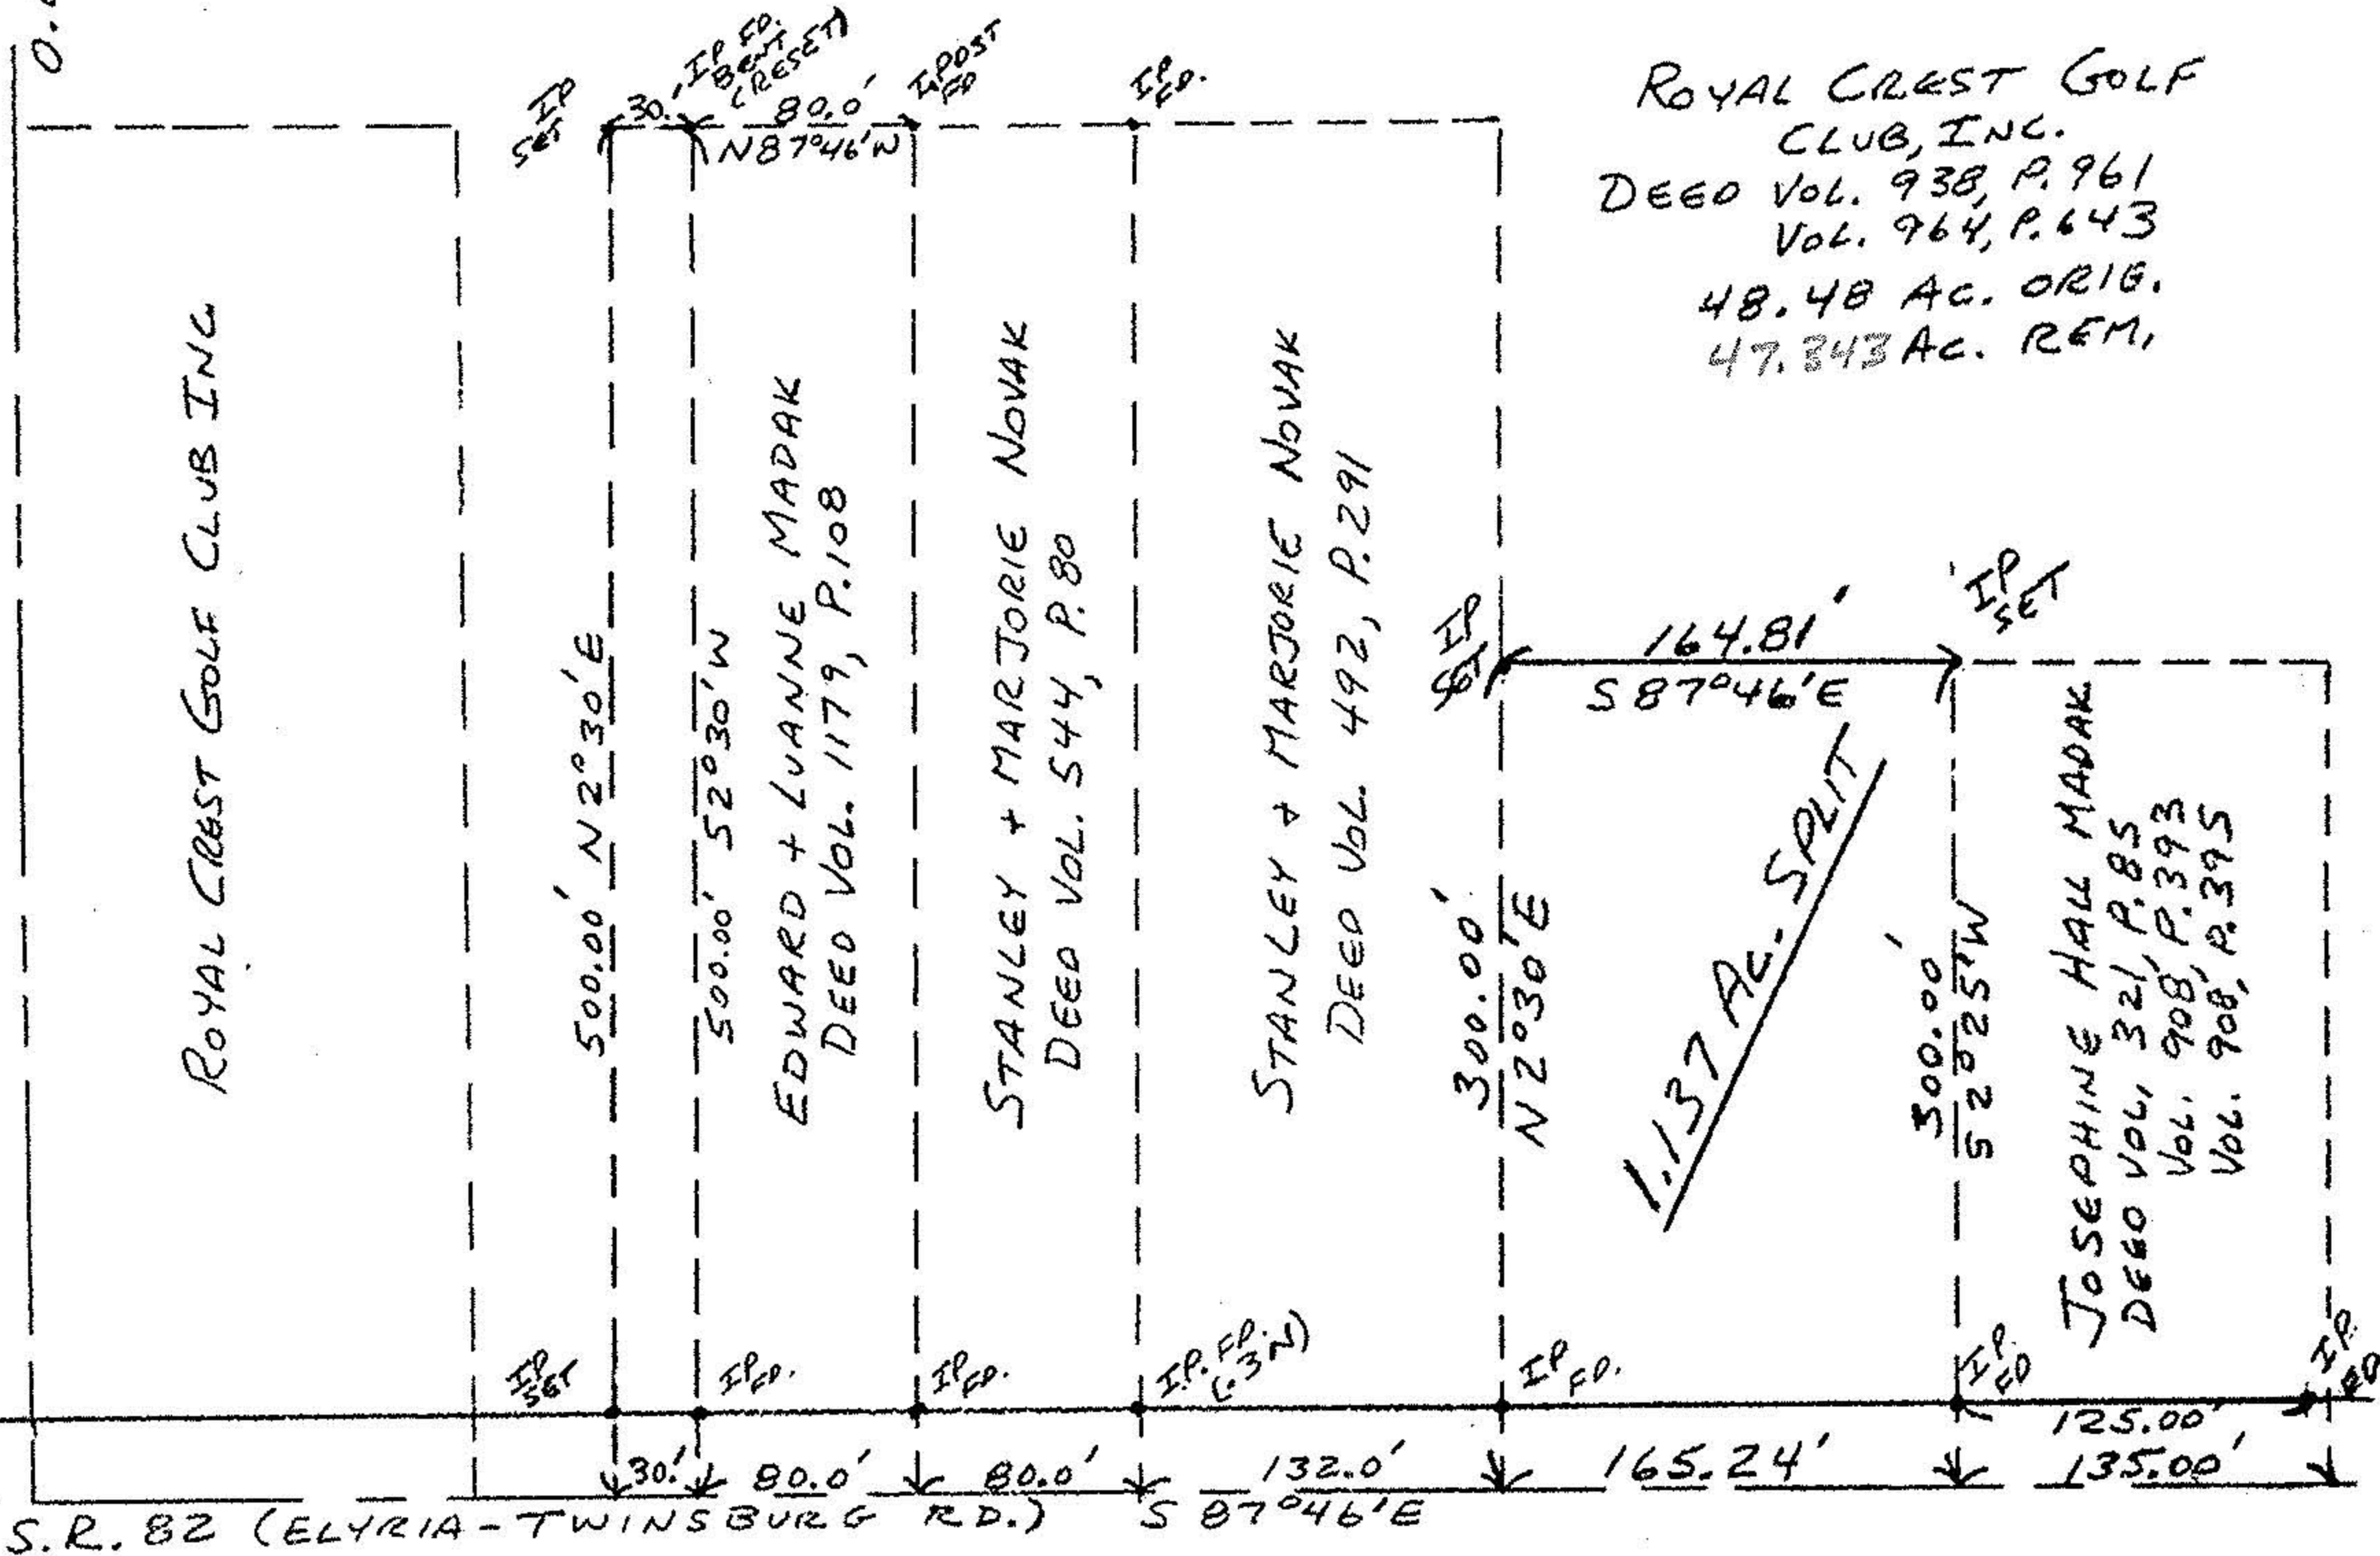 0.
IP SET
30.'
IP FD. BENT (RESET)
80.0'
N87°46'W
I.POST FD
IP FD.
ROYAL CREST GOLF
CLUB, INC.
DEED VOL. 938, P. 961
VOL. 964, P. 643
48.48 AC. ORIG.
47.343 AC. REM.
ROYAL CREST GOLF CLUB INC
500.00' N2°30'E
500.00' S2°30'W
EDWARD + LUANNE MADAK
DEED VOL. 1179, P.108
STANLEY + MARJORIE NOVAK
DEED VOL. 544, P. 80
STANLEY + MARJORIE NOVAK
DEED VOL. 492, P. 291
IP SET
164.81'
S87°46'E
IP SET
300.00'
N2°30'E
1.137 AC. SPLIT
300.00'
S2°25'W
JOSEPHINE HALL MADAK
DEED VOL. 321, P.85
VOL. 908, P.393
VOL. 908, P.395
IP SET
IP FD.
IP FD.
IP. FD. (.3 N)
IP FD.
IP. FD
IP. FD
125.00'
30.'
80.0'
80.0'
132.0'
165.24'
135.00'
S 87°46'E
S.R. 82 (ELYRIA-TWINSBURG RD.)